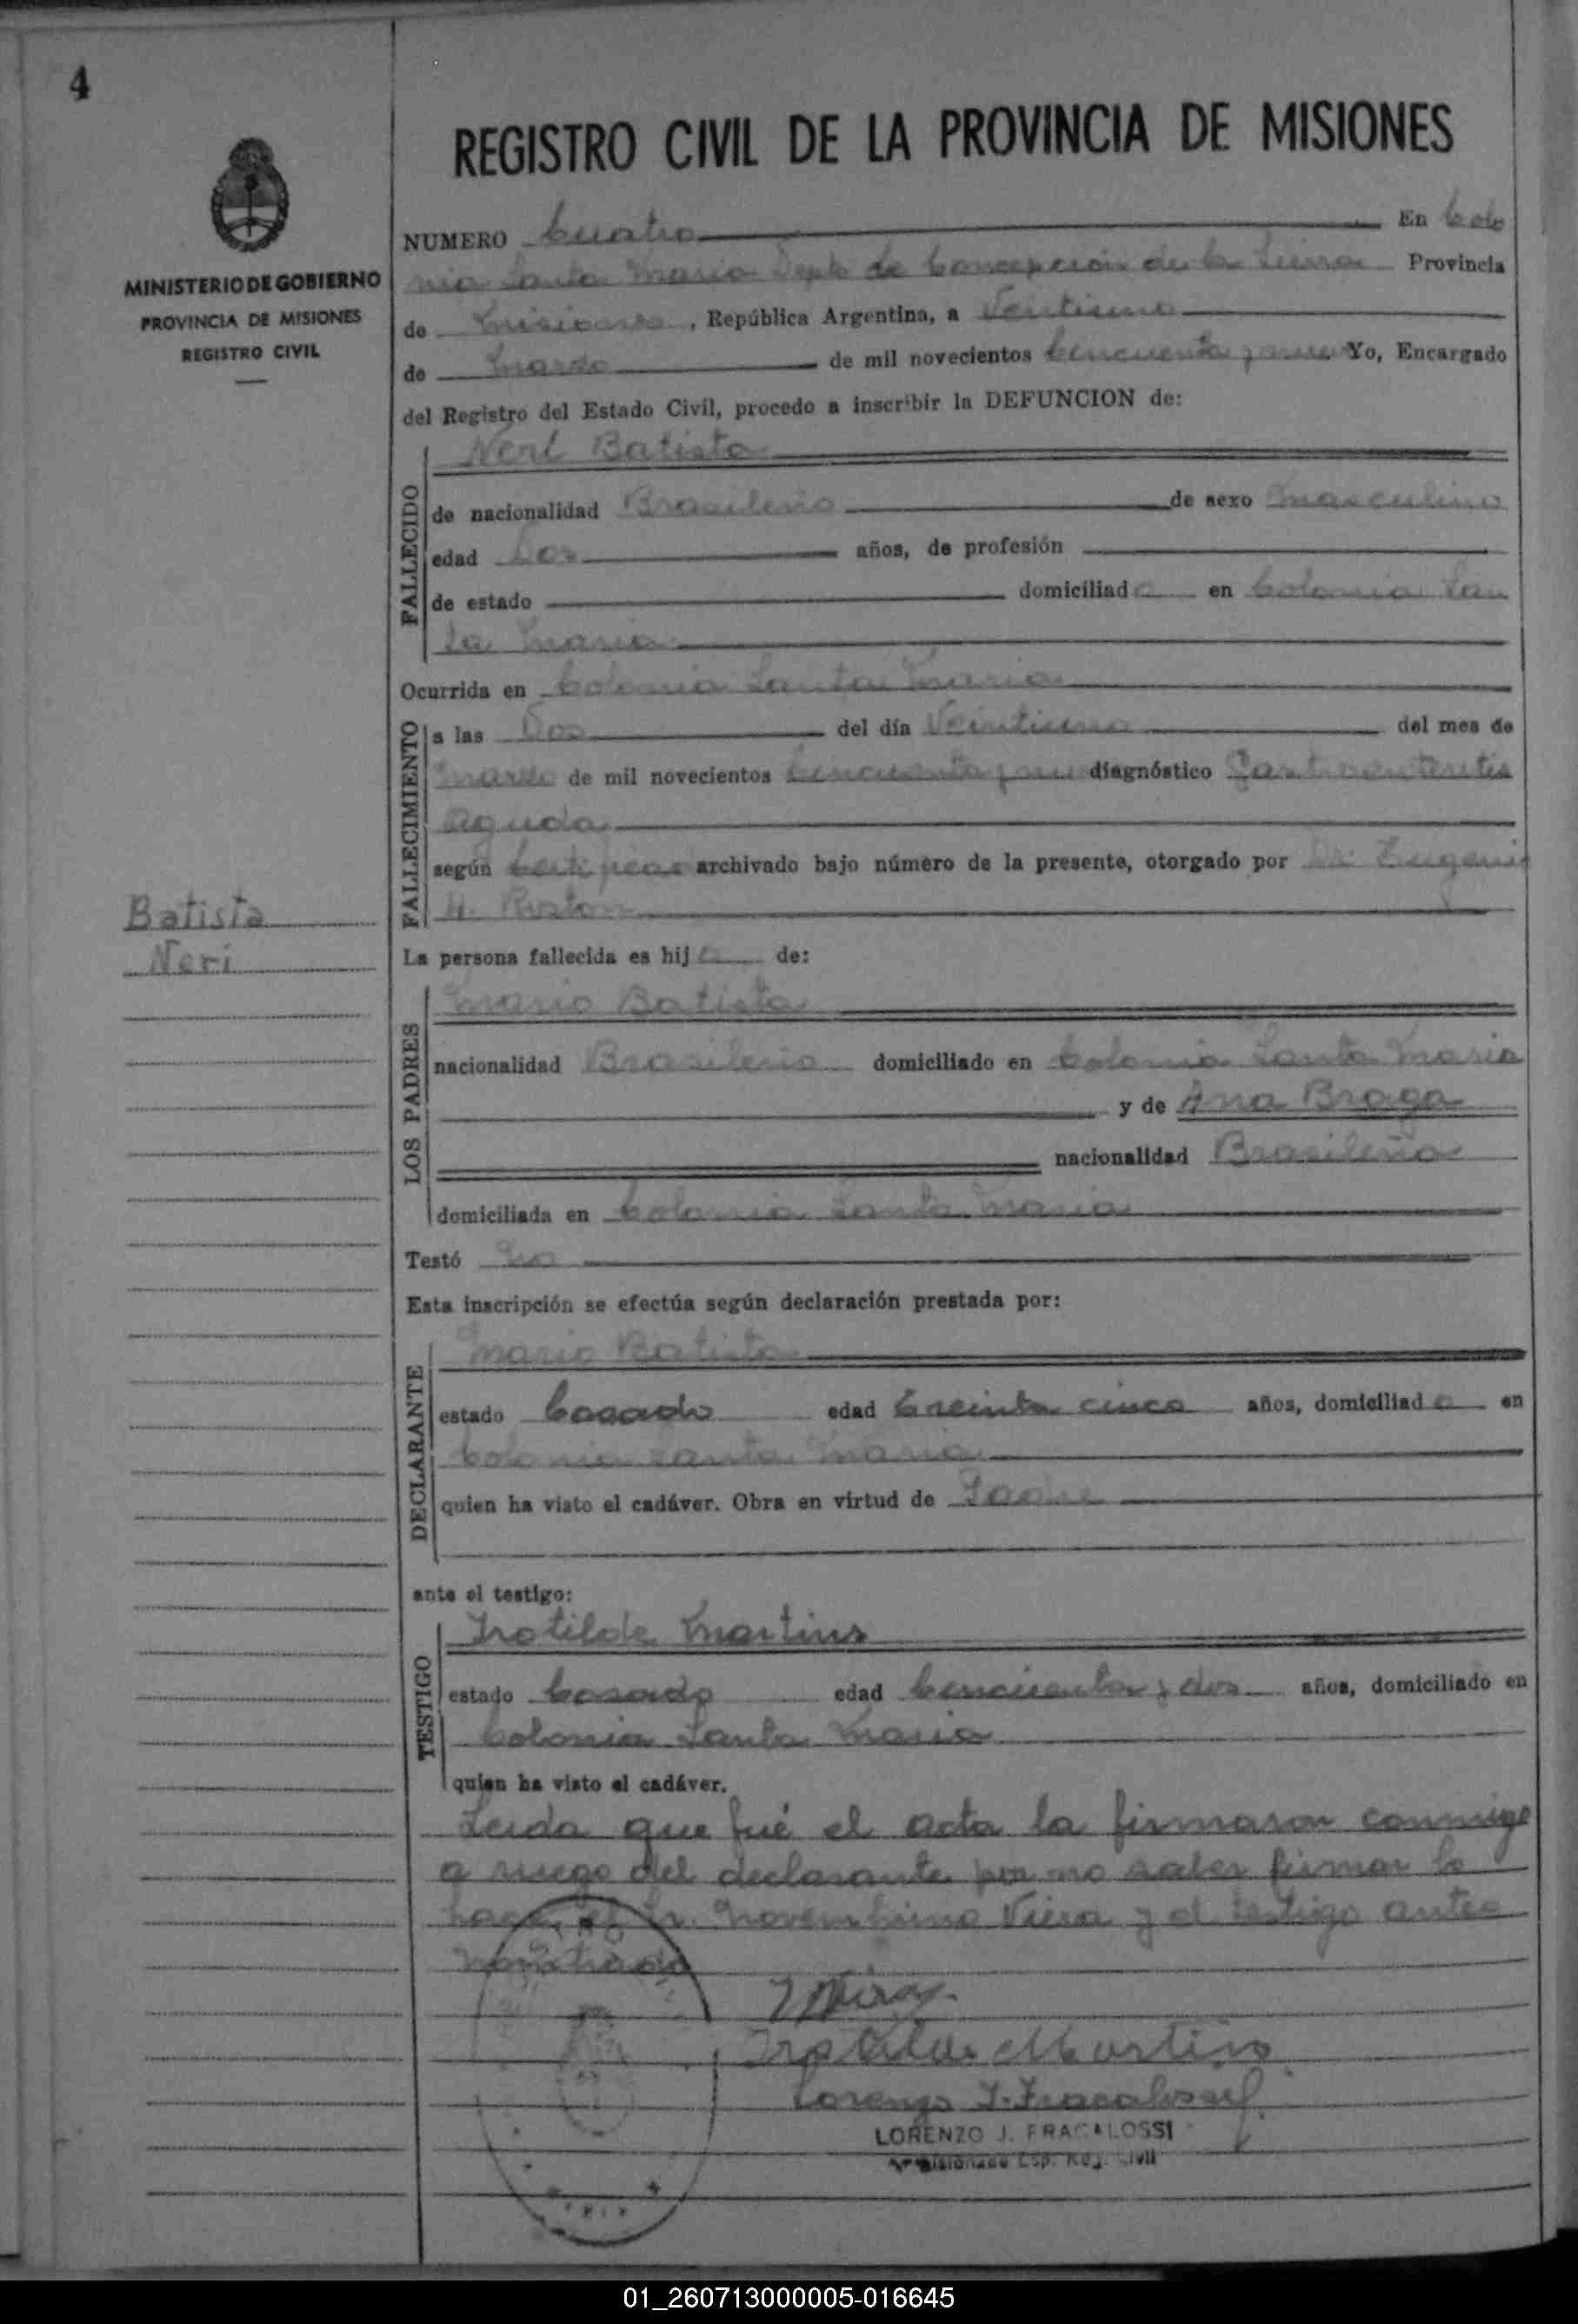 4
REGISTRO CIVIL DE LA PROVINCIA DE MISIONES
MINISTERIO DE GOBIERNO
PROVINCIA DE MISIONES
REGISTRO CIVIL
NUMERO Cuatro En Colo
nia Santa Maria Depto de Concepción de la Sierra Provincia
de Misiones, República Argentina, a Veintiuno
de Marzo de mil novecientos cincuenta y nueve Yo, Encargado
del Registro del Estado Civil, procedo a inscribir la DEFUNCION de:
FALLECIDO
Neri Batista
de nacionalidad Brasileño de sexo Masculino
edad Dos años, de profesión
de estado domiciliado en Colonia San
ta Maria
Ocurrida en Colonia Santa Maria
FALLECIMIENTO
a las Dos del día Veintiuno del mes de
Marzo de mil novecientos cincuenta y nue diagnóstico Gastroenteritis
aguda
según certificado archivado bajo número de la presente, otorgado por Dr. Eugenio
H.
Batista
Neri
La persona fallecida es hijo de:
LOS PADRES
Mario Batista
nacionalidad Brasileño domiciliado en Colonia Santa Maria
y de Ana Braga
nacionalidad Brasileña
domiciliada en Colonia Santa Maria
Testó No
Esta inscripción se efectúa según declaración prestada por:
DECLARANTE
Mario Batista
estado Casado edad Treinta cinco años, domiciliado en
Colonia Santa Maria
quien ha visto el cadáver. Obra en virtud de Padre
ante el testigo:
TESTIGO
Irotilde Martins
estado Casado edad Cincuenta y dos años, domiciliado en
Colonia Santa Maria
quien ha visto el cadáver.
Leida que fué el acta la firmaron conmigo
a ruego del declarante por no saber firmar lo
hace el Sr. Novembrino Viera y el testigo antes
nombrado
Irotilde Martins
Lorenzo J. Fracalossi
LORENZO J. FRACALOSSI
Esp. Reg. Civil
01_260713000005-016645